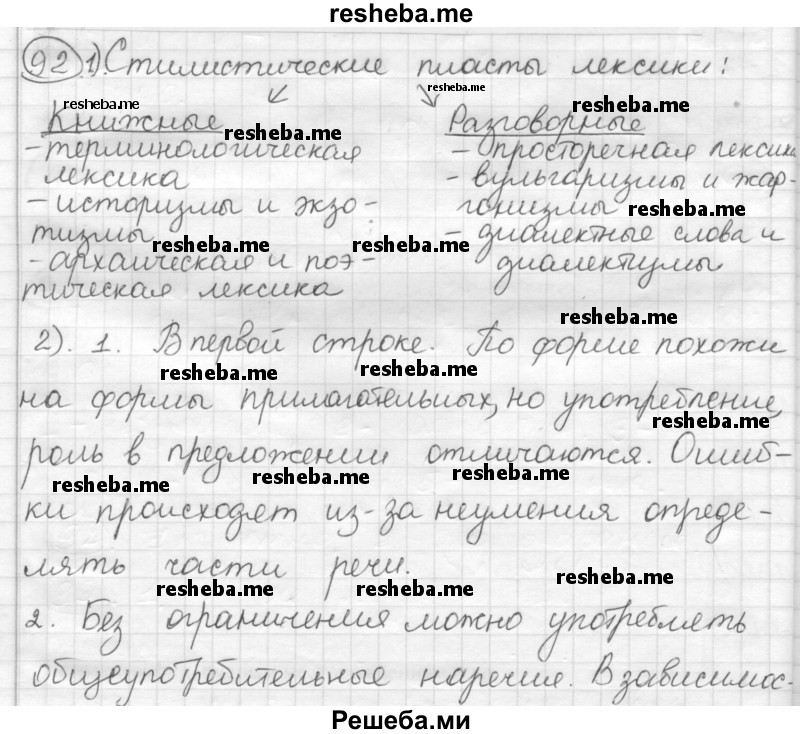 resheba.me
92 1). Стилистические пласты лексики:
resheba.me resheba.me
Книжные Разговорные
resheba.me resheba.me
- терминологическая - просторечная лексик
лексика - вульгаризмы и жар-
- историзмы и экзо- гонизмы resheba.me
тизмы resheba.me resheba.me - диалектные слова и
- архаическая и поэ- диалектизмы
тическая лексика
resheba.me
2). 1. В первой строке. По форме похожи
resheba.me resheba.me
на формы прилагательных, но употребление,
resheba.me
роль в предложении отличаются. Ошиб-
resheba.me resheba.me resheba.me
ки происходят из-за неумения опреде-
лять части речи.
resheba.me resheba.me resheba.me
2. Без ограничения можно употреблять
общеупотребительные наречия. В зависимос-
Решеба.ми